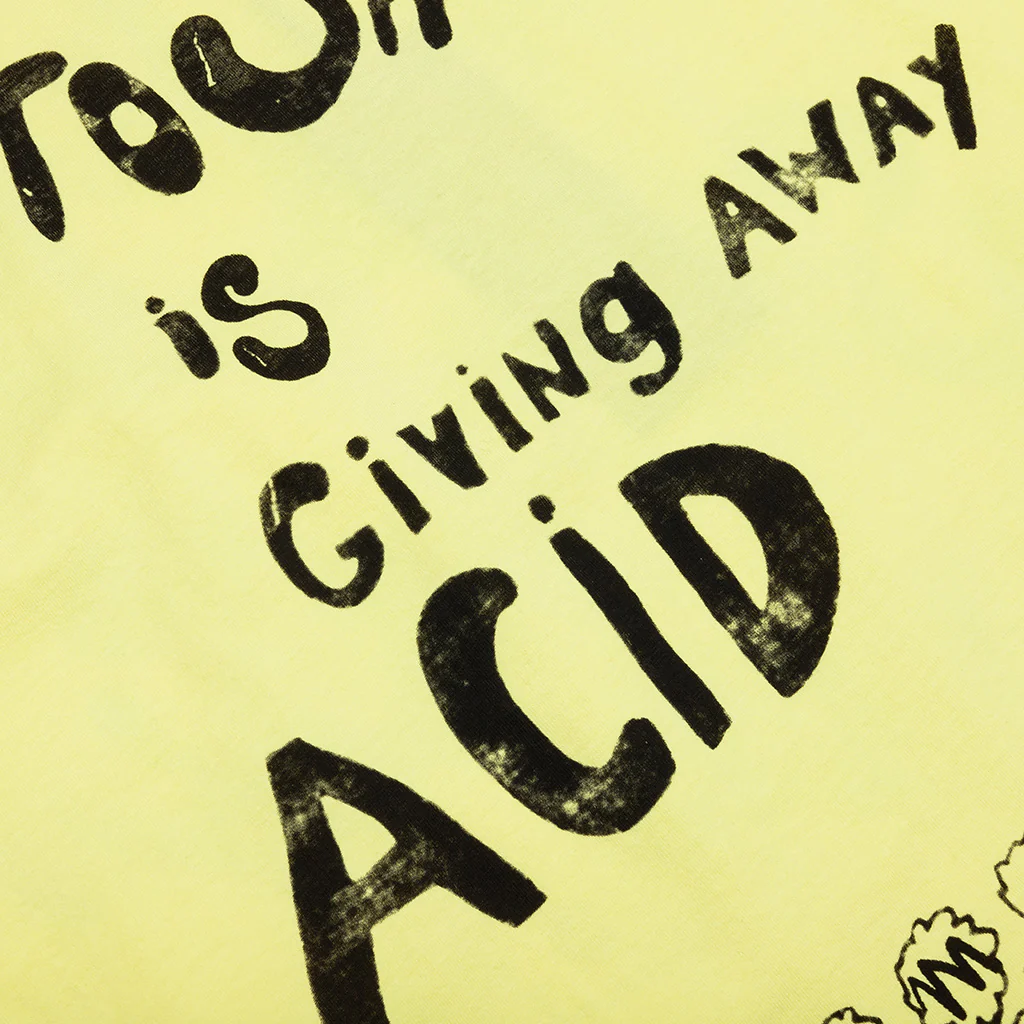 is
Giving AWAY
ACiD
M